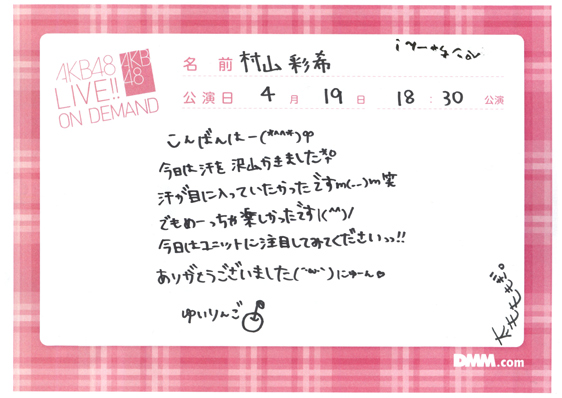 AKB48
LIVE!!
ON DEMAND
AKB
48
名 前 村山 彩希
公演日 4 月 19 日 18 : 30 公演
こんばんはー(*^^*)φ
今日は汗を沢山かきました
汗が目に入っていたかったですm(--)m笑
でもめーっちゃ楽しかったです!(^^)/
今日はユニットに注目してみてくださいっっ!!
ありがとうございました(´ω`)にゅーん
ゆいりんご
DMM.com